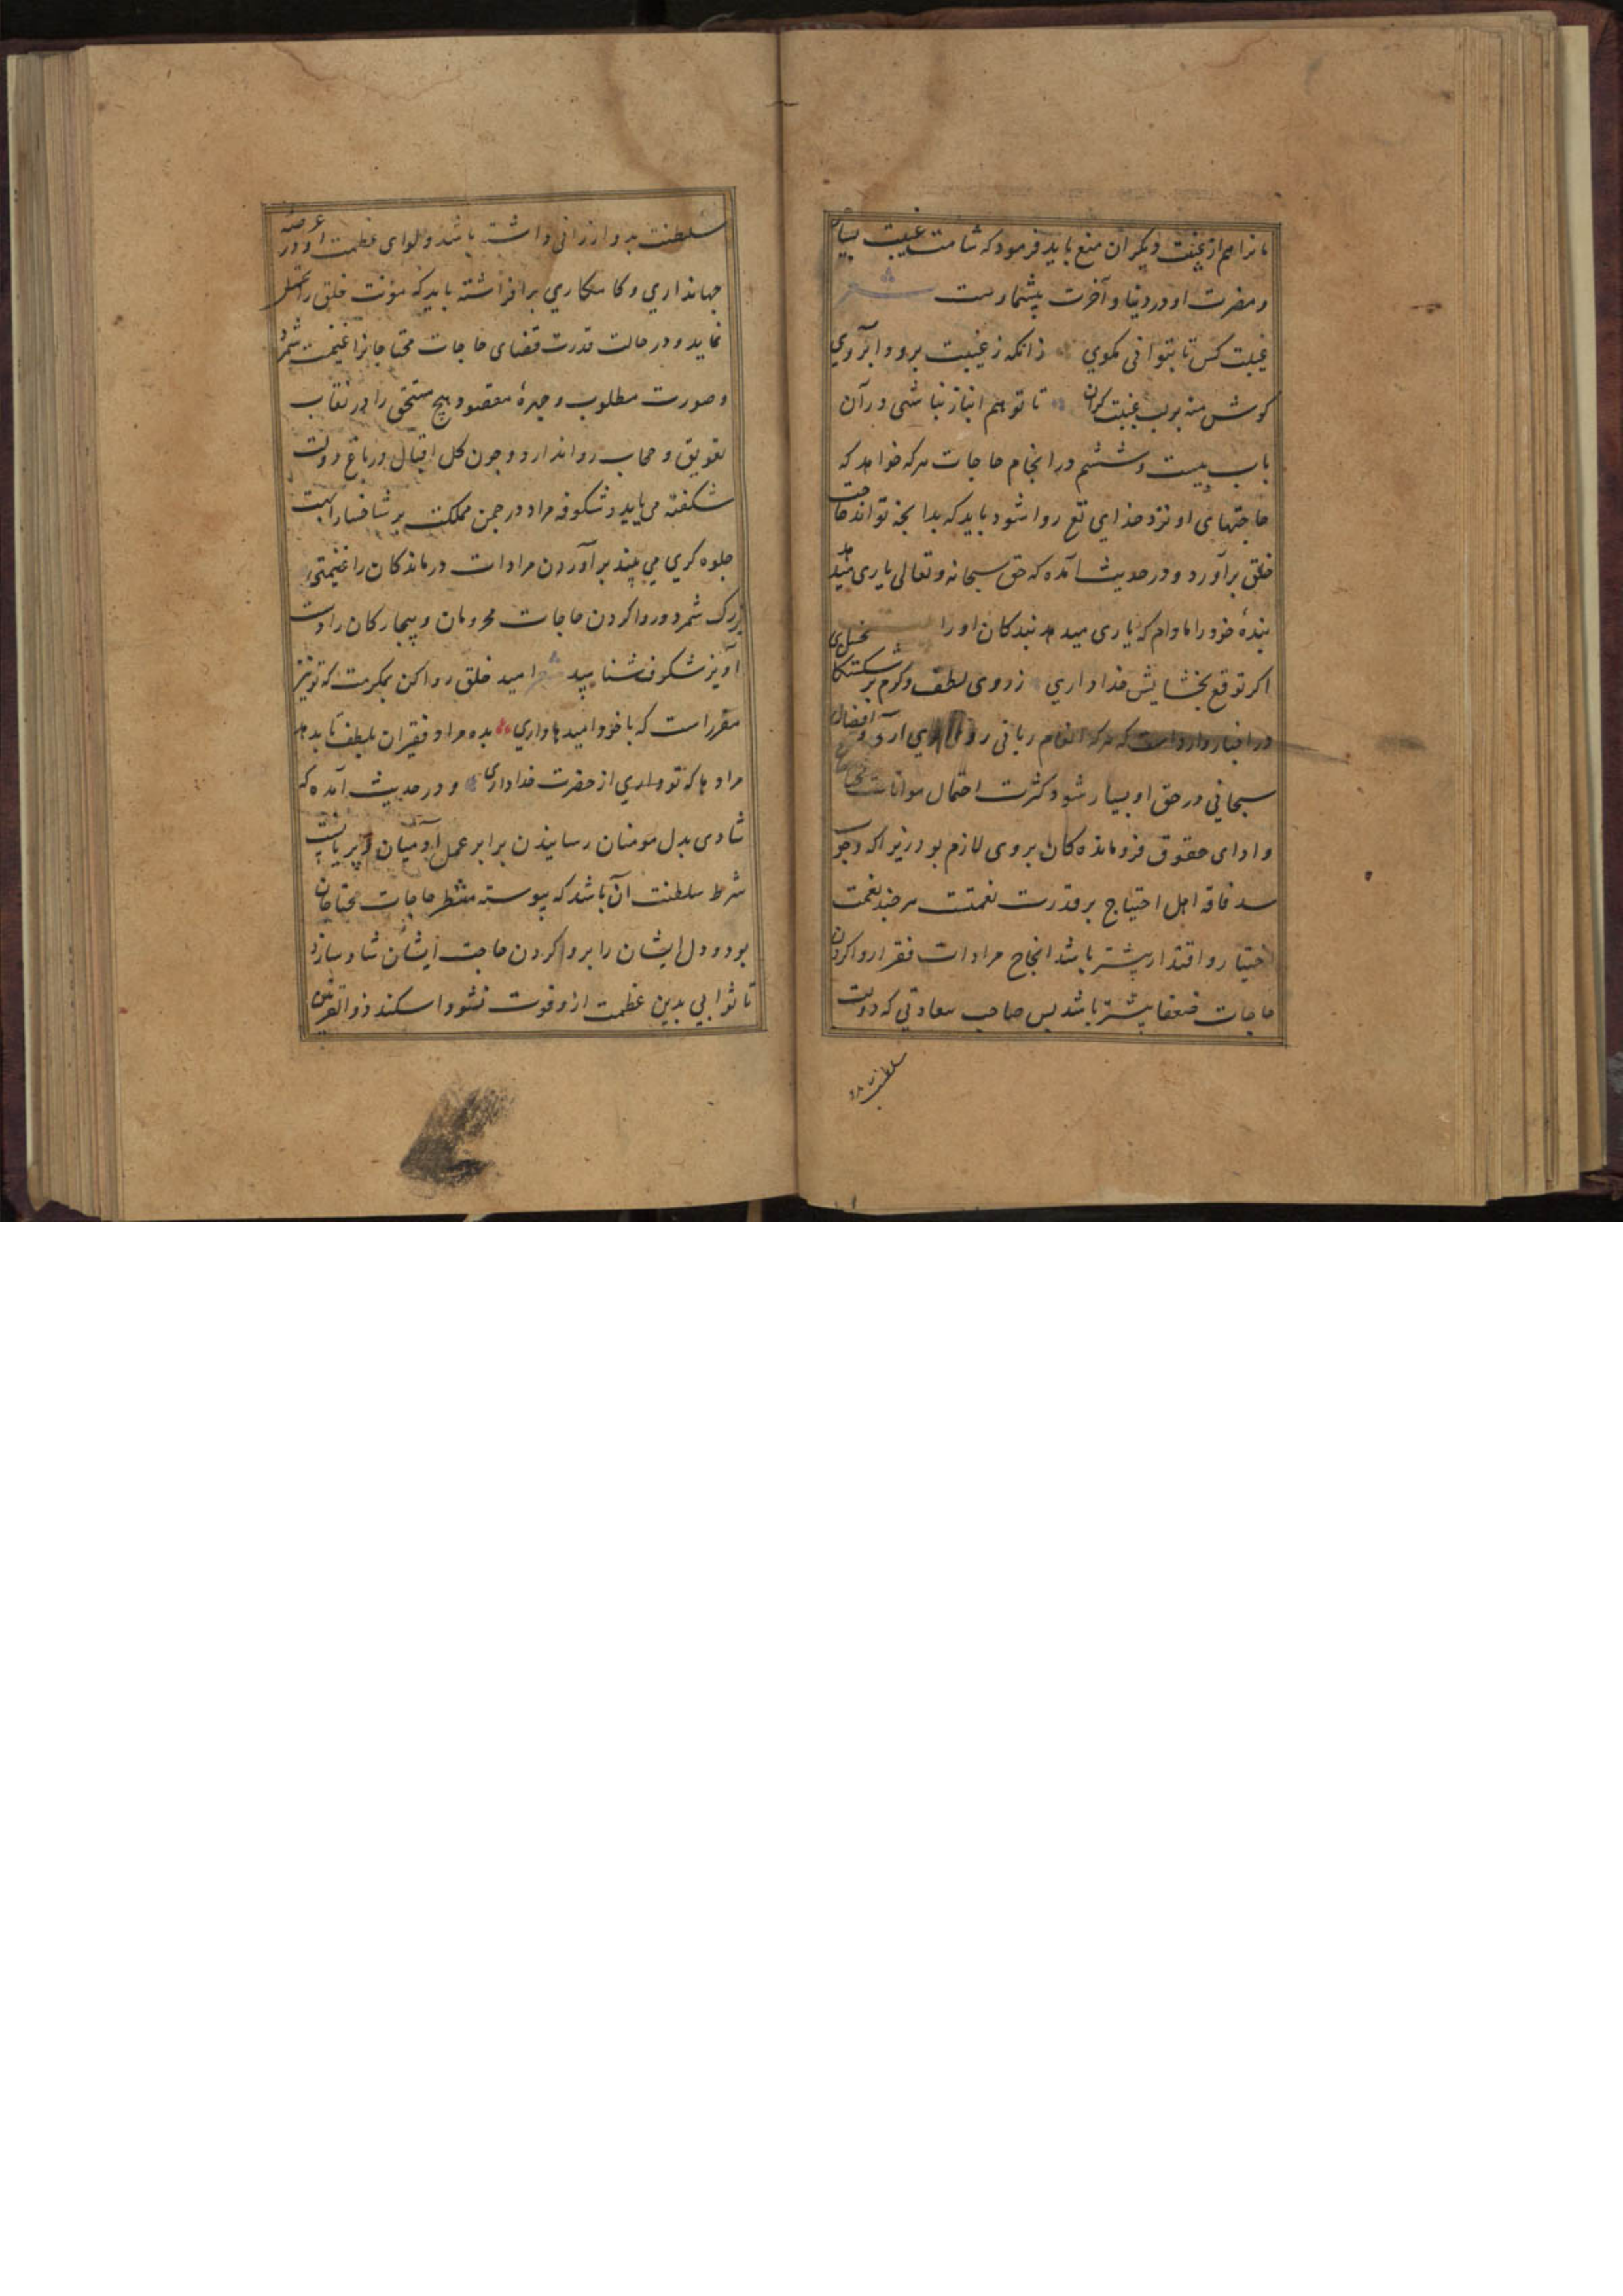 مانرا هم از غیبت دیگران منع باید فرمود که شامت غیبت بسیار
و مضرت او در دنیا و آخرت بیشمارست شعر
غیبت کس تا بتوانی مکوی زانکه ز غیبت برود آبروی
کوش منه بر لب غیبت کران تا تو هم انباز نباشی در آن
باب بیست و ششم در انجام حاجات هرکه خواهد که
حاجتهای او نزد خدای تع روا شود باید که بدانچه تواند حاجت
خلق برآورد و در حدیث آمده که حق سبحانه و تعالی یاری میدهد
بندهٔ خود را مادام که یاری میدهد بندکان او را
اکر توقع بخشایش خدا داری ز روی لطف و کرم بر شکستکان بخشای
در اخبار وارد است که هرکه انعام ربانی روی بوی آرد و افضال
سبحانی در حق او بسیار شود کثرت احتمال مؤانات
و ادای حقوق فروماندهکان بروی لازم بود زیرا که وجوب
سد فاقه اهل احتیاج بر قدرت نعمتست هر چند نعمت
اختیار و اقتدار بیشتر باشد انجاح مرادات فقرا و روا کردن
حاجات ضعفا بیشتر باشد پس صاحب سعادتی که دولت
سلطنت بد
سلطنت بدو ارزانی داشته باشد و لوای عظمت او در عرصه
جهانداری و کامکاری برافراشته باید که مؤنت خلق را تحمل
نماید و در حالت قدرت قضای حاجات محتاجانرا غنیمت شمرد
و صورت مطلوب و چهرهٔ مقصود هیچ مستحق را در نقاب
تعویق و حجاب روا ندارد و چون کل اقبال در باغ دولت
شکفته می یابد و شکوفه مراد در چمن مملکت بر شاخسار ابهت
جلوه کری می بیند برآوردن مرادات درماندکان را غنیمتی
بزرک شمرد و روا کردن حاجات محرومان و بیچارکان را دست
آویز شکرف شناسید شعر امید خلق روا کن بمکرمت که تو نیز
مقررست که با خود امیدها داری بده مراد فقیران بلطف تا بدهد
مرادها که تو داری از حضرت خدا داری و در حدیث آمده که
شادی بدل مومنان رسانیدن برابر عمل آدمیان و پریانست
شرط سلطنت آن باشد که پیوسته منتظر حاجات محتاجان
بود و دل ایشان را بروا کردن حاجت ایشان شاد سازد
تا ثوابی بدین عظمت ازو فوت نشود اسکندر ذوالقرنین